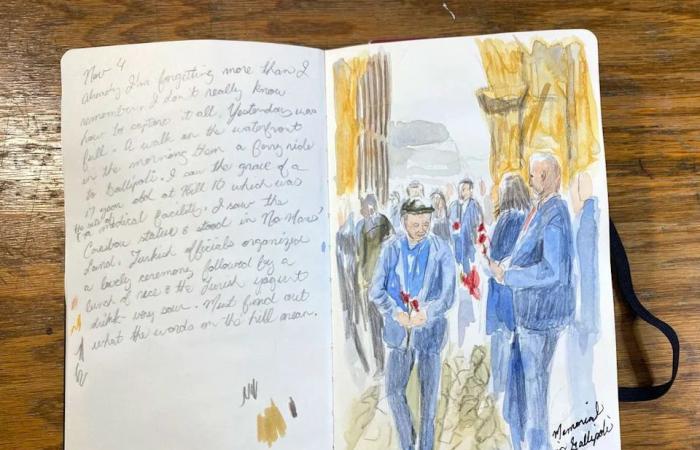 Nov 4
Already I'm forgetting more than I
remember. I don't really know
how to capture it all. Yesterday was
full. A walk on the waterfront
in the morning then a ferry ride
to Gallipoli. I saw the grave of a
17 year old at Hill 10 which was
a medical facility. I saw the
Caribou statue & stood in No Mans'
Land. Turkish officials organized
a lovely ceremony followed by a
lunch of rice & the Turish yogurt
drink - very sour. Must find out
what the words on the hill mean.
Memorial
Gallipoli